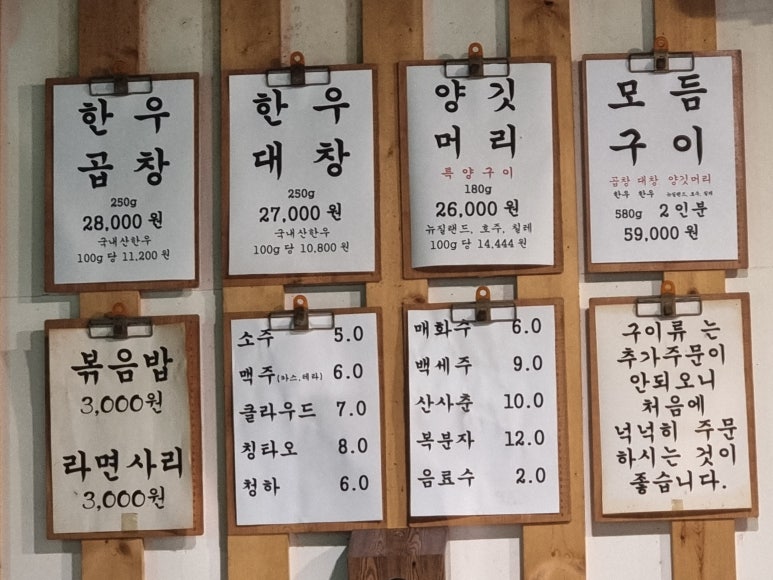 한우
곱창
250g
28,000 원
국내산한우
100g 당 11,200 원
한우
대창
250g
27,000 원
국내산한우
100g 당 10,800 원
양깃
머리
특양구이
180g
26,000 원
뉴질랜드, 호주, 칠레
100g 당 14,444 원
모듬
구이
곱창 대창 양깃머리
한우 한우 뉴질랜드, 호주, 칠레
580g 2인분
59,000 원
볶음밥
3,000원
라면사리
3,000원
소주 5.0
맥주(카스,테라) 6.0
클라우드 7.0
칭타오 8.0
청하 6.0
매화주 6.0
백세주 9.0
산사춘 10.0
복분자 12.0
음료수 2.0
구이류 는
추가주문이
안되오니
처음에
넉넉히 주문
하시는 것이
좋습니다.